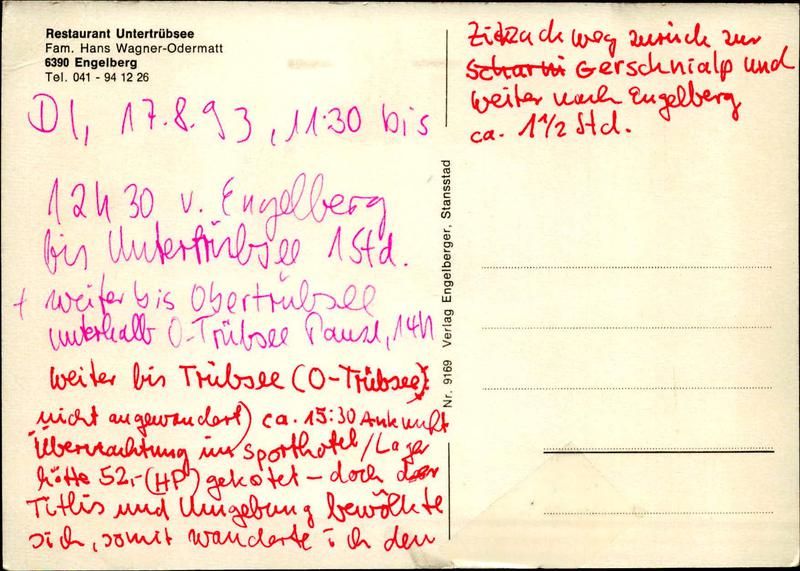 Restaurant Untertrübsee
Fam. Hans Wagner-Odermatt
6390 Engelberg
Tel. 041 - 94 12 26
DI, 17.8.93, 11:30 bis
12h 30 v. Engelberg
bis Untertrübsee 1 Std.
+ weiter bis Obertrübsee
unterhalb O-Trübsee Pause, 14h
weiter bis Trübsee (O-Trübsee
nicht angewandert) ca. 15:30 Ankunft
Übernachtung im Sporthotel / Lager
hätte 52,- (HP) gekotet – doch der
Titlis und Umgebung bewölkte
sich, somit wanderte ich den
Nr. 9169 Verlag Engelberger, Stansstad
Zickzackweg zurück zur
Gerschnialp und
weiter nach Engelberg
ca. 1 1/2 Std.